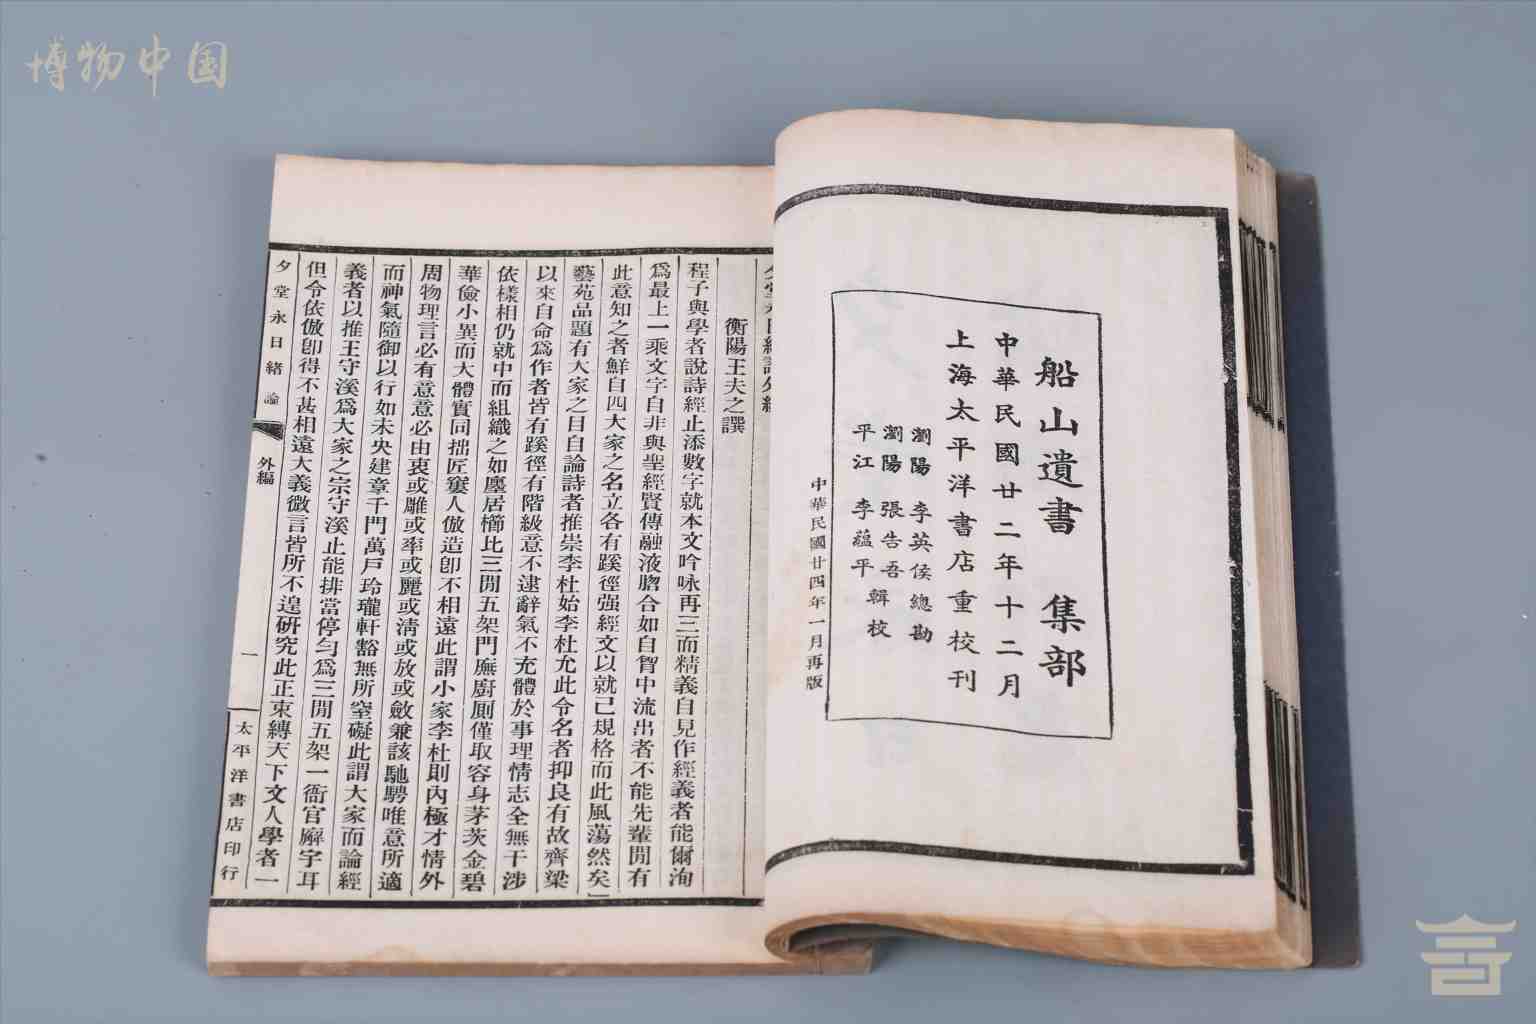 博物中国
船山遺書 集部
中華民國廿二年十二月
上海太平洋書店重校刊
瀏陽 李英侯總勘
瀏陽 張告吾
平江 李蘊平 輯校
中華民國廿四年一月再版
夕堂永日緒論外編
衡陽王夫之譔
程子與學者說詩經止添數字就本文吟咏再三而精義自見作經義者能爾洵
爲最上一乘文字自非與聖經賢傳融液脗合如自胷中流出者不能先輩閒有
此意知之者鮮自四大家之名立各有蹊徑强經文以就己規格而此風蕩然矣
藝苑品題有大家之目自論詩者推崇李杜始李杜允此令名者抑良有故齊梁
以來自命爲作者皆有蹊徑有階級意不逮辭氣不充體於事理情志全無干涉
依樣相仍就中而組織之如廛居櫛比三閒五架門廡廚厠僅取容身茅茨金碧
華儉小異而大體實同拙匠窶人倣造卽不相遠此謂小家李杜則內極才情外
周物理言必有意意必由衷或雕或率或麗或淸或放或斂兼該馳騁唯意所適
而神氣隨御以行如未央建章千門萬戶玲瓏軒豁無所窒礙此謂大家而論經
義者以推王守溪爲大家之宗守溪止能排當停勻爲三閒五架一衙官廨宇耳
但令依倣卽得不甚相遠大義微言皆所不遑硏究此正束縛天下文人學者一
夕堂永日緒論 外編 一 太平洋書店印行